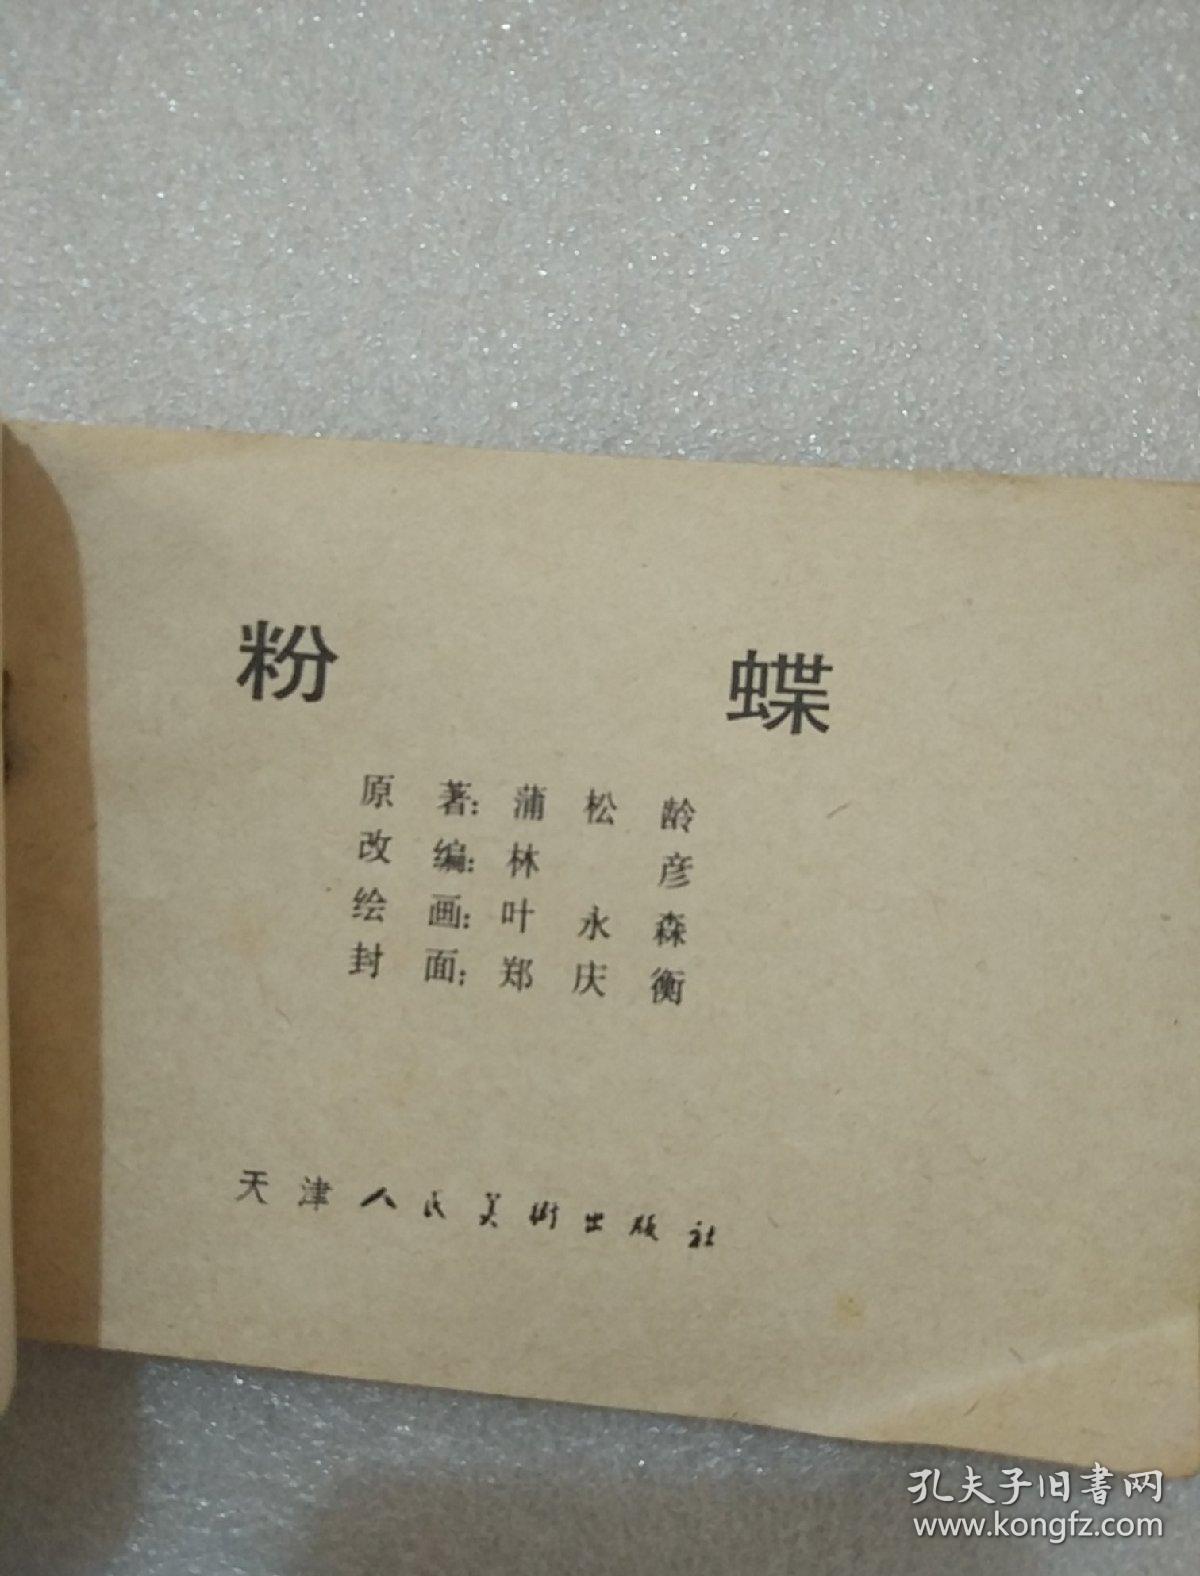 粉 蝶
原 著：蒲 松 龄
改 编：林 彦
绘 画：叶 永 森
封 面：郑 庆 衡
天 津 人 民 美 術 出 版 社
孔夫子旧書网
www.kongfz.com